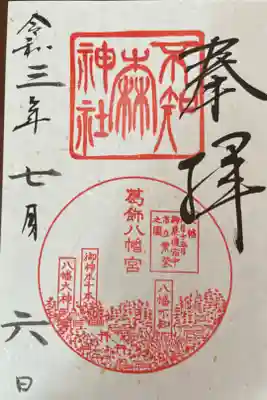 奉拝
不知森神社
葛飾八幡宮
八幡不知
御神木千本
八幡大神
令和三年七月六日